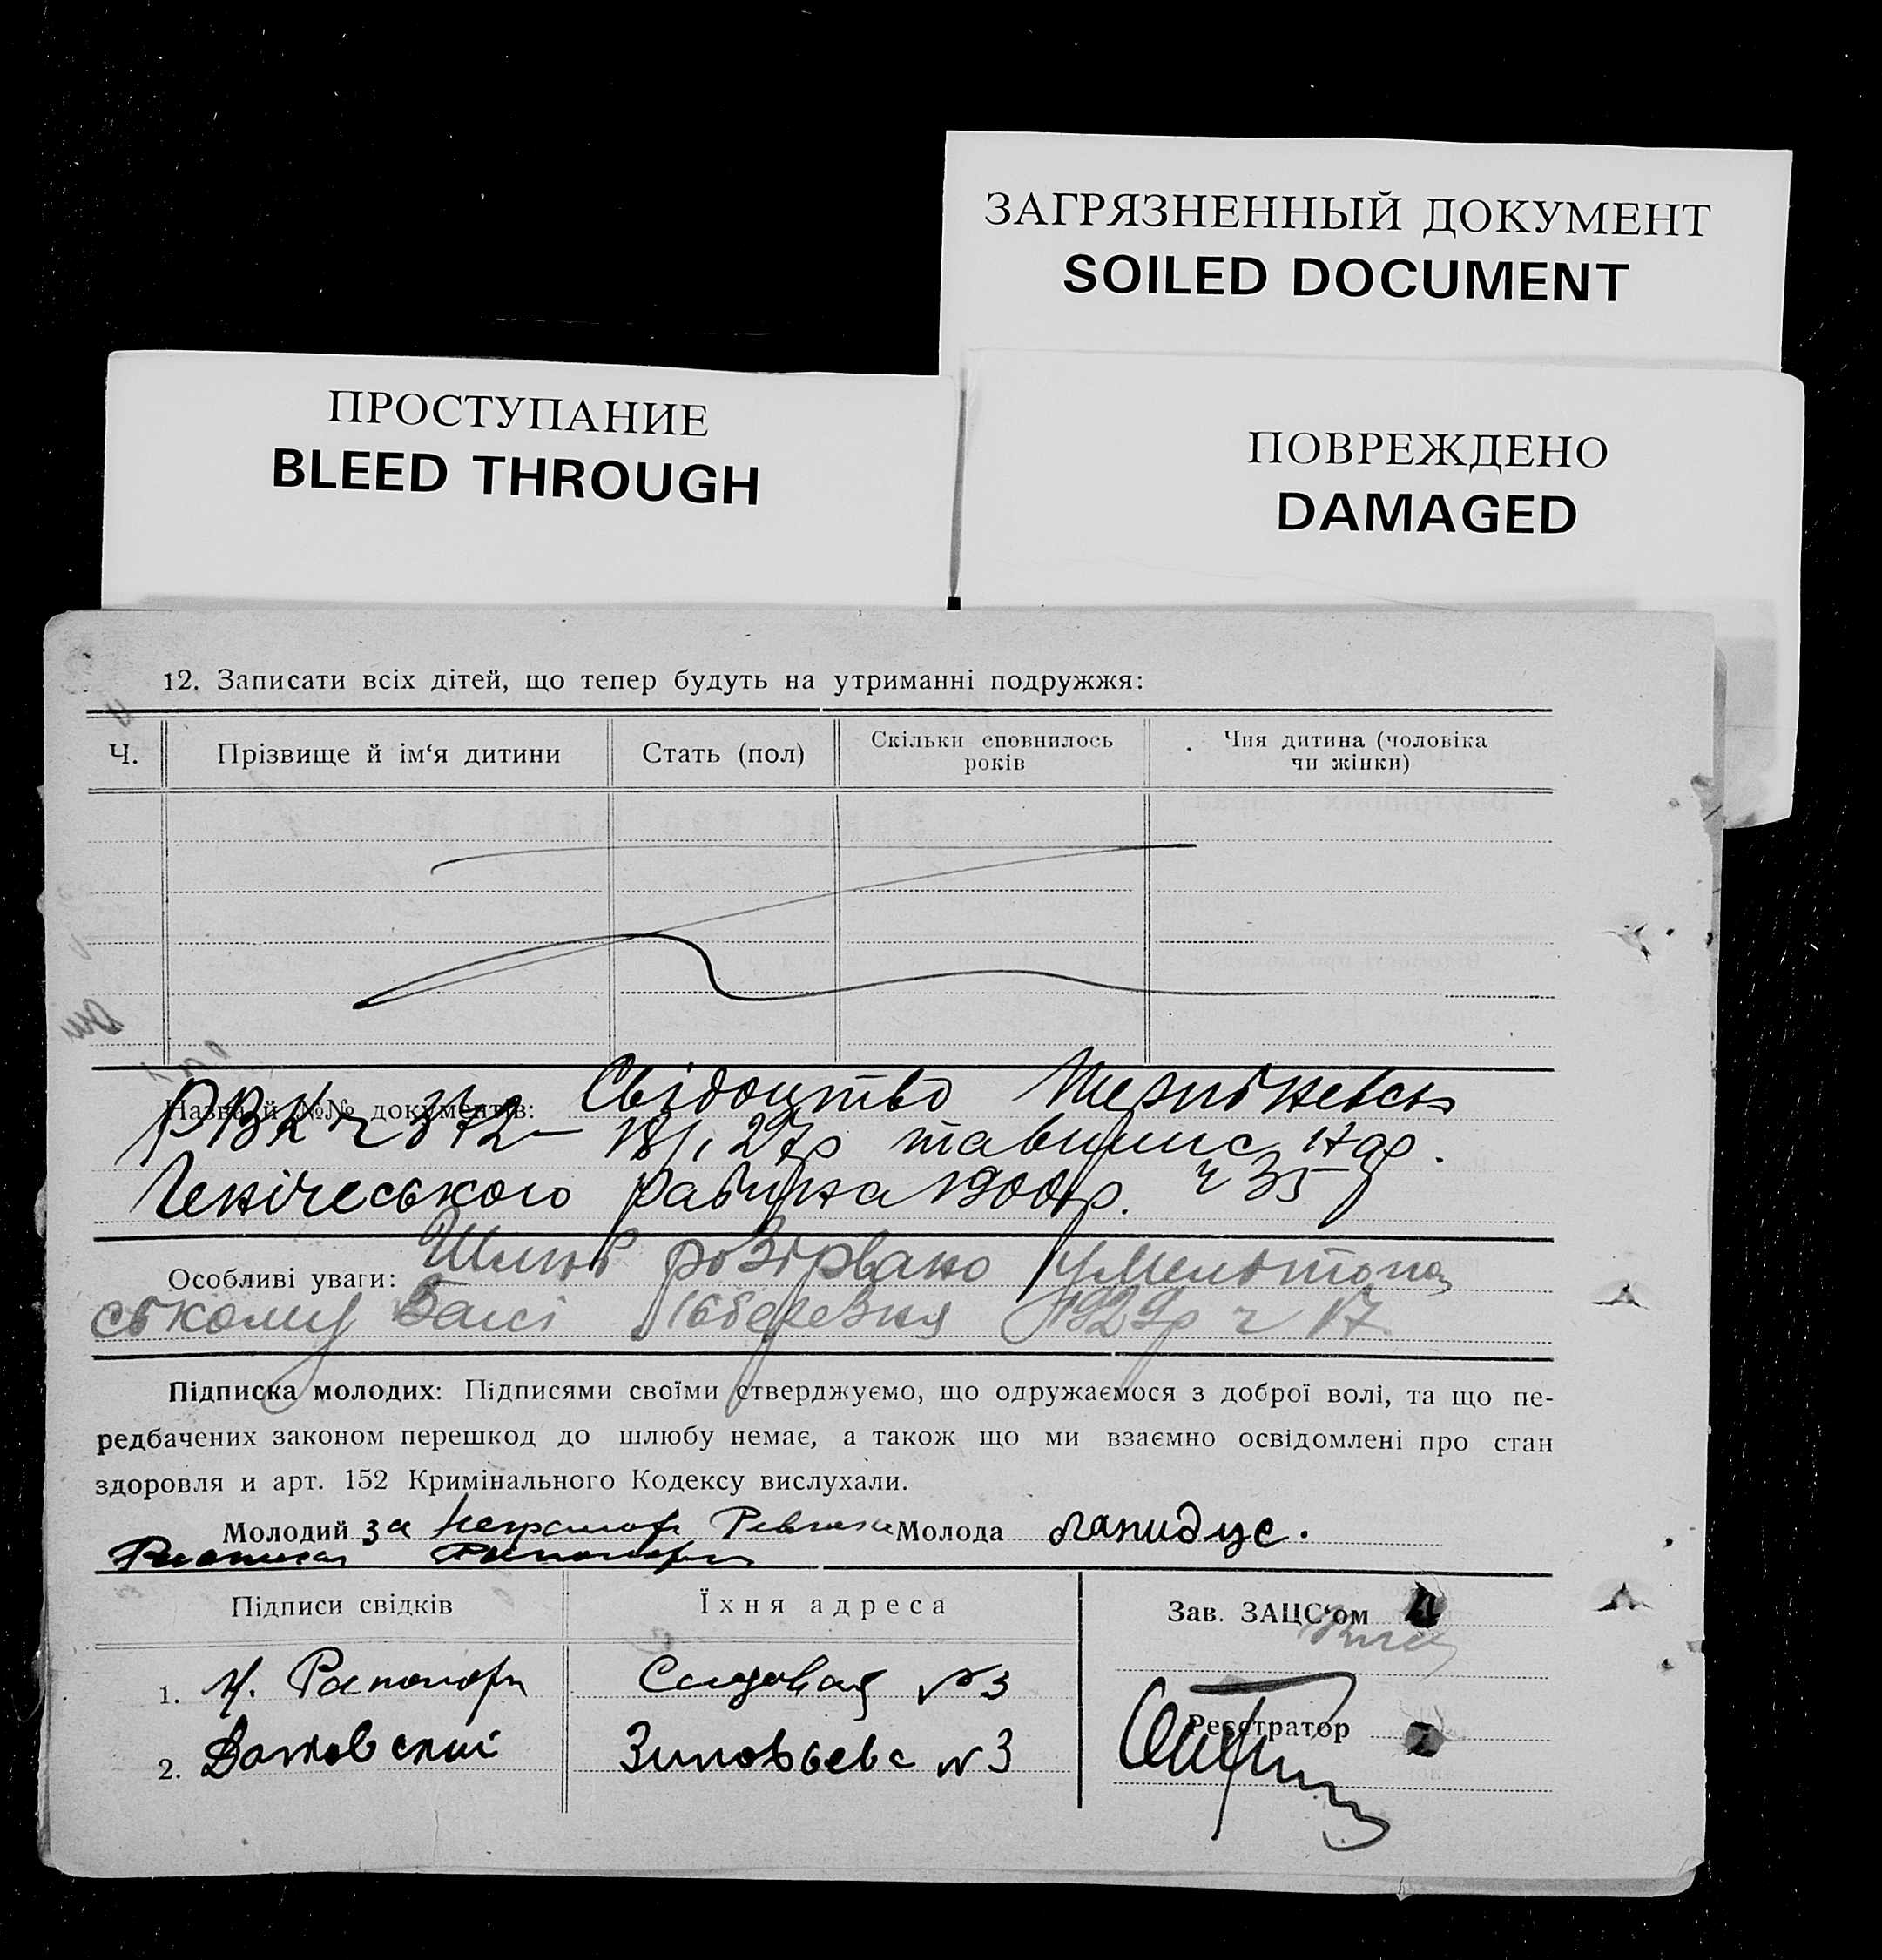 ЗАГРЯЗНЕННЫЙ ДОКУМЕНТ
SOILED DOCUMENT
ПРОСТУПАНИЕ
BLEED THROUGH
ПОВРЕЖДЕНО
DAMAGED
12. Записати всіх дітей, що тепер будуть на утриманні подружжя:
Ч.
Прізвище й ім‘я дитини
Стать (пол)
Скільки сповнилось
років
Чия дитина (чоловіка
чи жінки)
Назва й №№ документів: Свідоцтво
РВК ч 372 – 18/1, 27р та випис нар.
Генічеського рабина 1900р. ч 35
Особливі уваги: Шлюб розірвано у Мелітопол
ському Загсі 16 березня 1929р ч 17
Підписка молодих: Підписями своїми стверджуємо, що одружаємося з доброї волі, та що пе-
редбачених законом перешкод до шлюбу немає, а також що ми взаємно освідомлені про стан
здоровля и арт. 152 Кримінального Кодексу вислухали.
Молодий за Молода Лапидус.
Рапопорт
Підписи свідків
Їхня адреса
Зав. ЗАЦС‘ом
1. Рапопорт
Садовая №3
Реєстратор
2.
Зиновьева №3